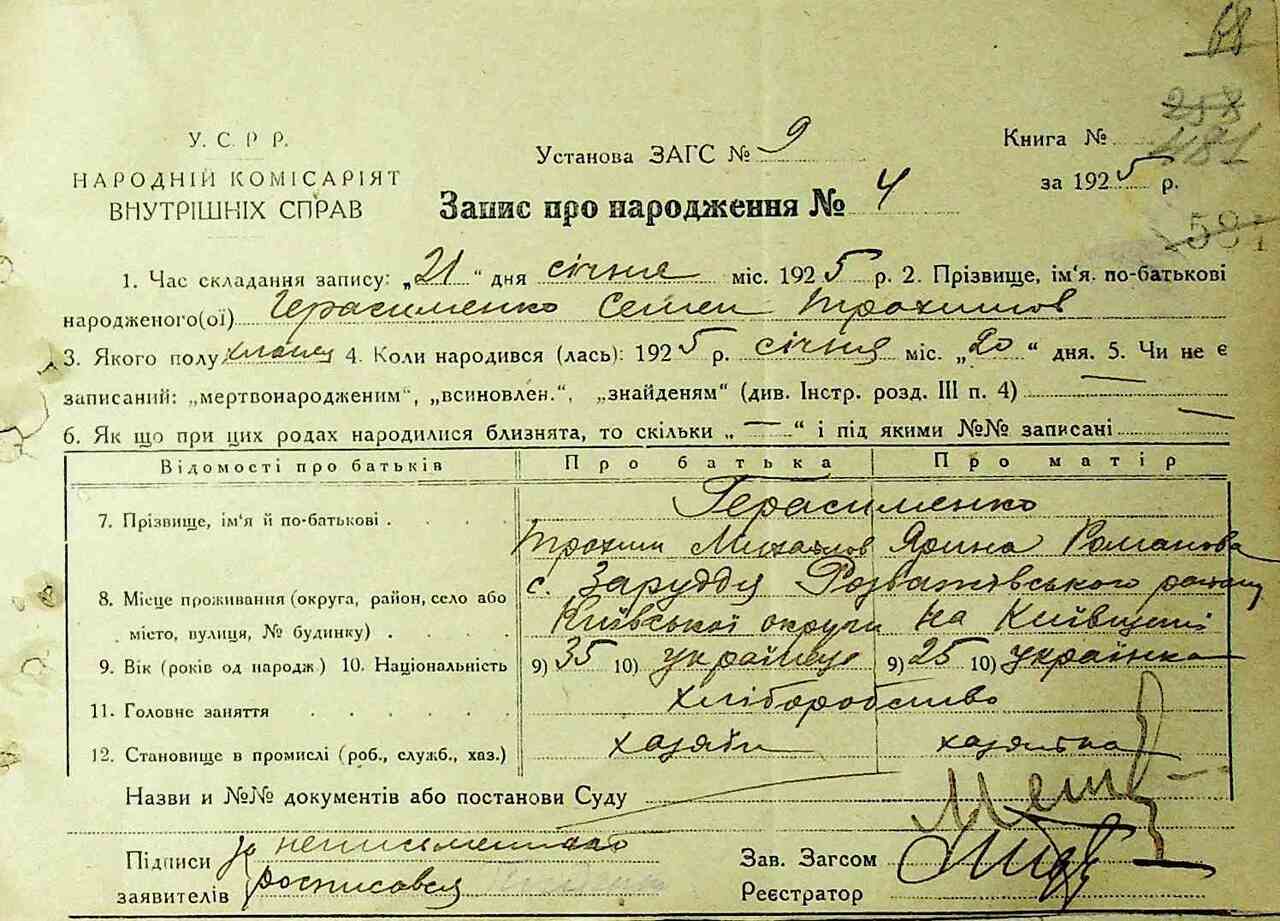 68
258
481
581
У. С. Р Р.
НАРОДНІЙ КОМІСАРІЯТ
ВНУТРІШНІХ СПРАВ
Установа ЗАГС № 9
Книга №
за 1925 р.
Запис про народження № 4
1. Час складання запису: „21“ дня січня міс. 1925 р. 2. Прізвище, ім'я. по-батькові
народженого(ої) Герасименко Семен Трохимов
3. Якого полу хлопец 4. Коли народився (лась): 1925 р. січня міс. „20“ дня. 5. Чи не є
записаний: „мертвонародженим“, „всиновлен.“, „знайденям“ (див. Інстр. розд. III п. 4) —
6. Як що при цих родах народилися близнята, то скільки „—“ і під якими №№ записані —
Відомості про батьків Про батька Про матір
7. Прізвище, ім'я й по-батькові . . . . . Герасименко
Трохим Михайлов Ярина Романова
8. Місце проживання (округа, район, село або с. Заруддя Розважівського району
місто, вулиця, № будинку) . . . . Київської округи на Київщині
9. Вік (років од народж) 10. Національність 9) 35 10) українец 9) 25 10) українка
11. Головне заняття . . . . . . хліборобство
12. Становище в промислі (роб., служб., хаз.) хазяїн хазяйка
Назви и №№ документів або постанови Суду
Підписи за неписьменного
заявителів росписався
Зав. Загсом
Реєстратор